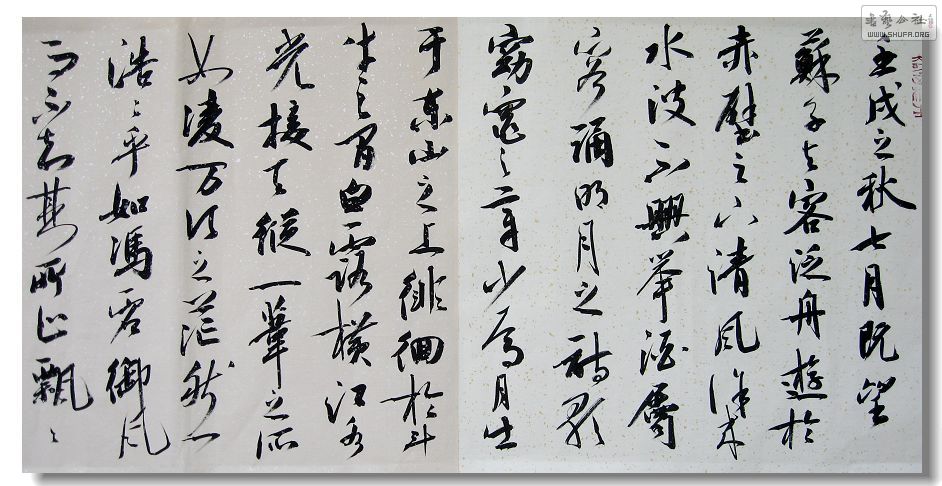 壬戌之秋七月既望
蘇子与客泛舟遊於
赤壁之下清風徐来
水波不興举酒屬
客誦明月之詩歌
窈窕之章少焉月出
于東山之上徘徊於斗
牛之間白露横江水
光接天縱一葦之所
如凌万頃之茫然
浩〻乎如馮虛御風
而不知其所止飄〻
书艺公社
WWW.SHUFA.ORG